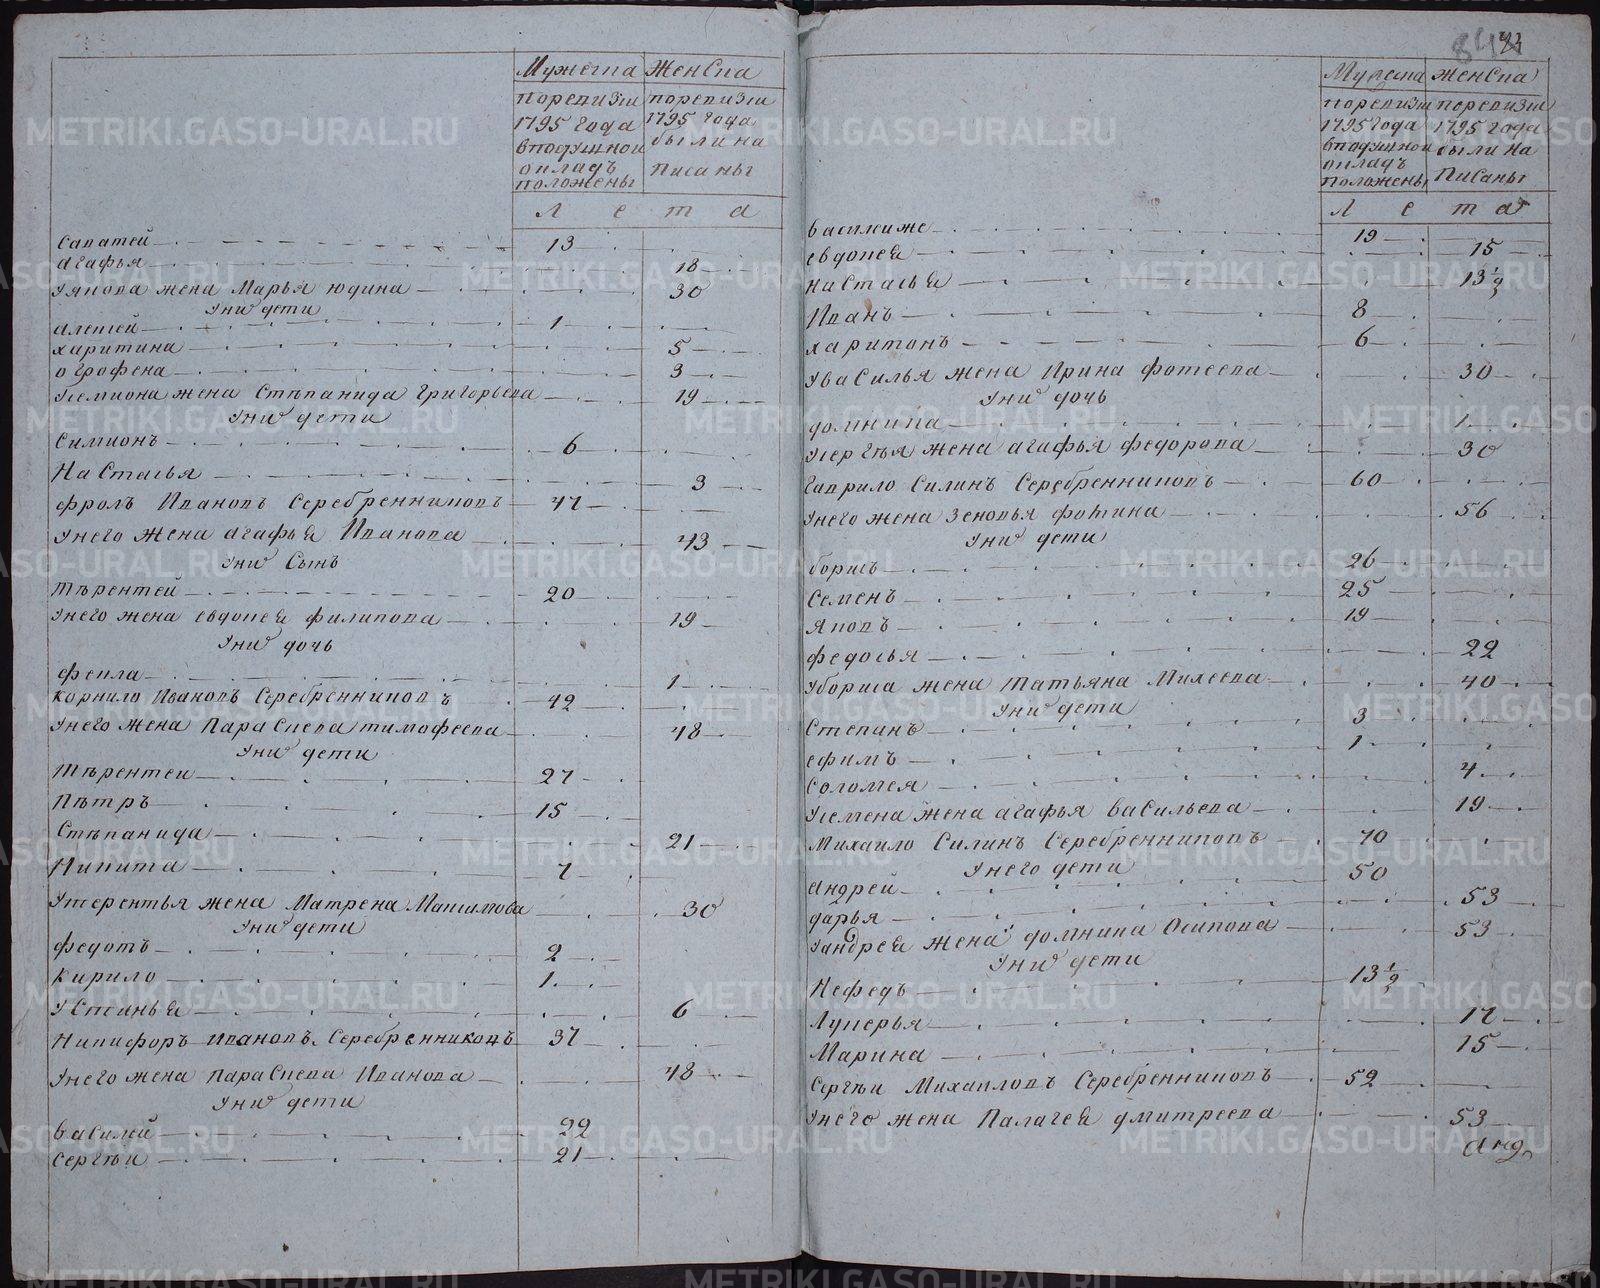 Мужеска Женска
поревизїи поревизїи
1795 года 1795 года
вподушной были на
окладъ писаны
положены
Л е т а
Саватей 13
агафья 18
Уякова жена Марья юдина 30
Униⷯ дети
алексей 1
харитина 5
огрофена 3
Усемиона жена Стѣпанида григорьева 19
Униⷯ дети
Симионъ 6
Настасья 3
фролъ Ивановъ Серебренниковъ 47
Унего жена агафья Иванова 43
Униⷯ Сынъ
Тѣрентей 20
Унего жена евдокея филипова 19
Униⷯ дочь
фекла 1
корнило Ивановъ Серебренниковъ 42
Унего жена Параскева тимофеева 48
Униⷯ дети
Тѣрентей 27
Пѣтръ 15
Стѣпанида 21
Никита 7
Утерентья жена Матрена Максимова 30
Униⷯ дети
федотъ 2
кирило 1
Устинья 6
Никифоръ ивановъ Серебренниковъ 37
Унего жена параскева Иванова 48
Униⷯ дети
василей 22
Сергѣи 21
84
Мужеска женска
поревизїи поревизїи
1795 года 1795 года
вподушной были на
окладъ писаны
положены
Л е т а
василиже 19
евдокея 15
настасья 13 1/2
Иванъ 8
харитонъ 6
Увасилья жена Ирина фотеева 30
Униⷯ дочь
домника 1
Усергѣя жена агафья федорова 30
гаврило Силинъ Серебренниковъ 60
Унего жена зеновья фотина 56
Униⷯ дети
борисъ 26
Семенъ 25
Яковъ 19
федосья 22
Убориса жена татьяна Михеева 40
Униⷯ дети
Степанъ 3
ефимъ 1
Соломея 4
Усемена жена агафья васильева 19
Михаило Силинъ Серебренниковъ 70
Унего дети
андрей 50
дарья 53
Уандрея жена домника Осипова 53
Униⷯ дети
Нефедъ 13 1/2
Лукерья 17
Марина 15
Сергѣи Михаиловъ Серебренниковъ 52
Унего жена Палагея дмитреева 53
анд
METRIKI.GASO-URAL.RU